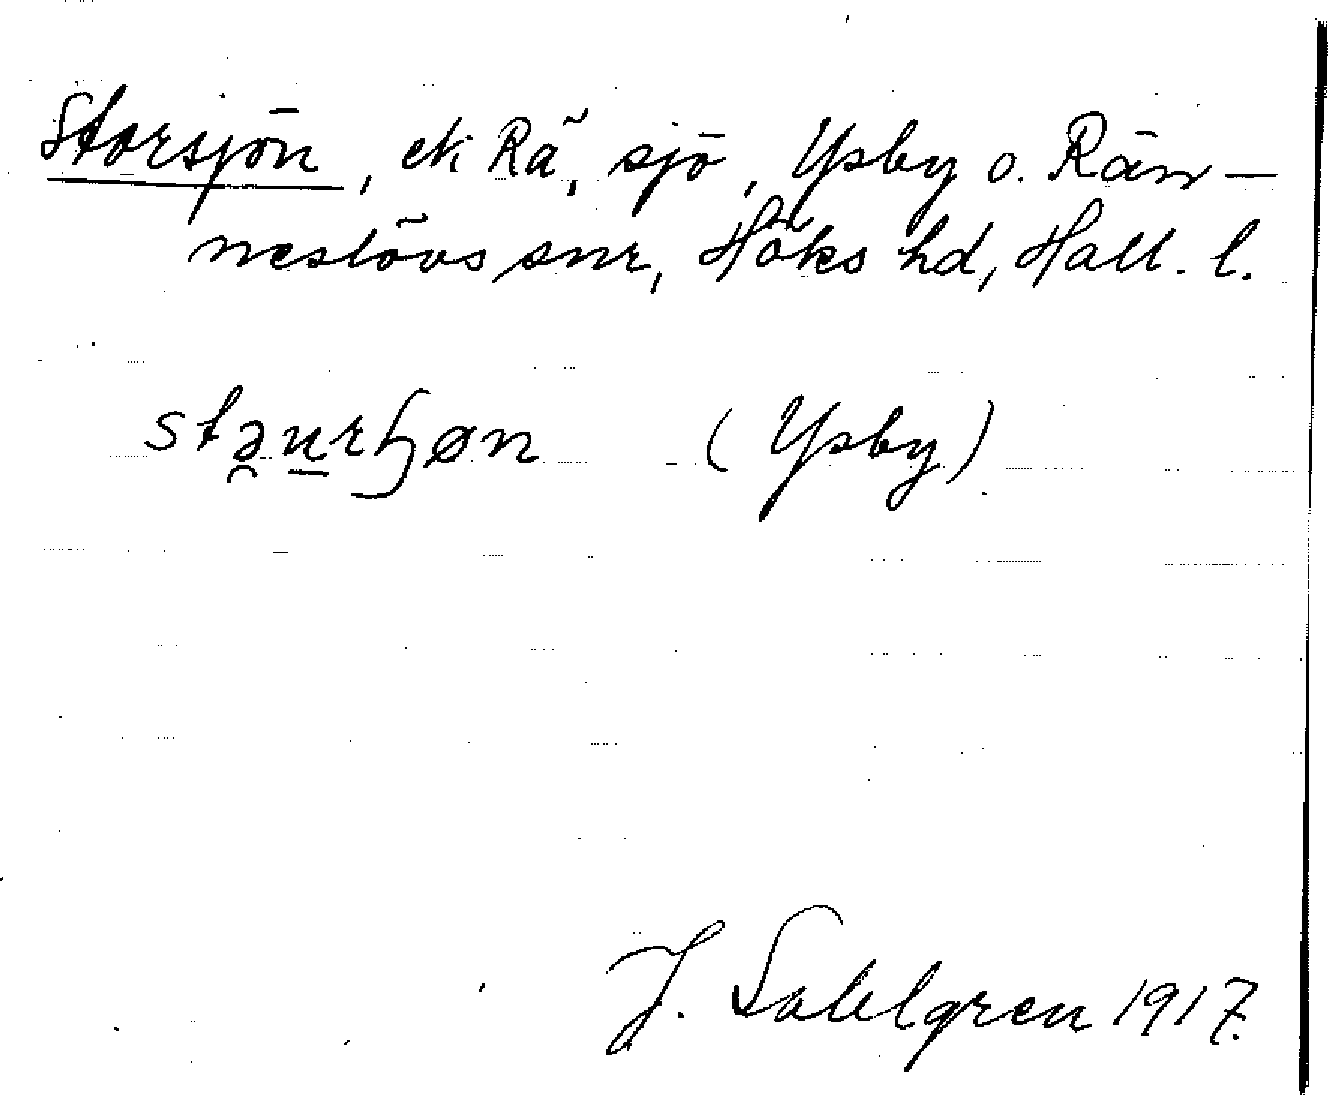 Storsjön, ek Rä, sjö, Ysby o. Rän-
neslövs snr, Höks hd, Hall. l.
stəurɧøn (Ysby)
J. Sahlgren 1917.